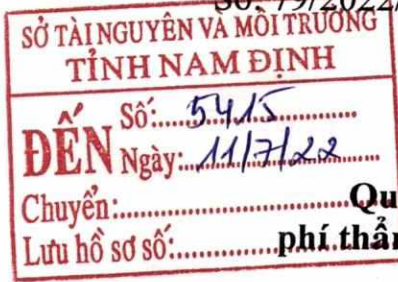 Số: 79/2022/
SỞ TÀI NGUYÊN VÀ MÔI TRƯỜNG
TỈNH NAM ĐỊNH
ĐẾN
Số:.....5415...............
Ngày:..11/7/22...........
Chuyển:..............................Qu
Lưu hồ sơ số:...............phí thẩm